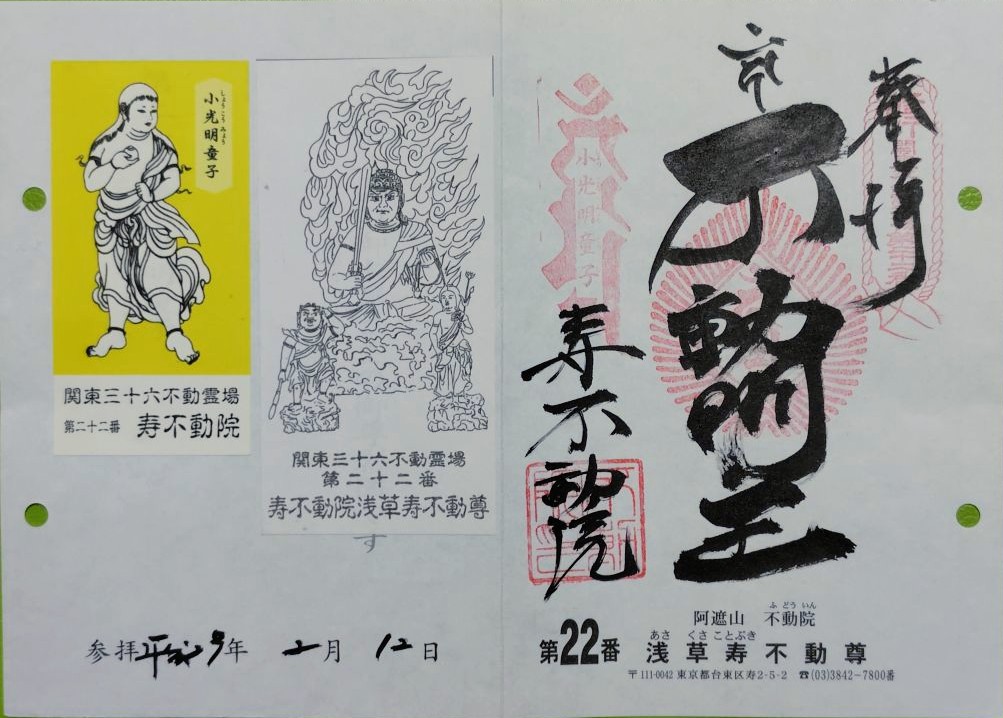 奉拝
不動明王
小光明童子
寿不動院
阿遮山 不動院
ふどういん
第22番 浅草寿不動尊
あさくさことぶき
〒111-0042 東京都台東区寿2-5-2 ☎(03)3842-7800番
小光明童子
しょうこうみょう
関東三十六不動霊場
第二十二番 寿不動院
関東三十六不動霊場
第二十二番
寿不動院浅草寿不動尊
す
参拝平成9年 月 12日